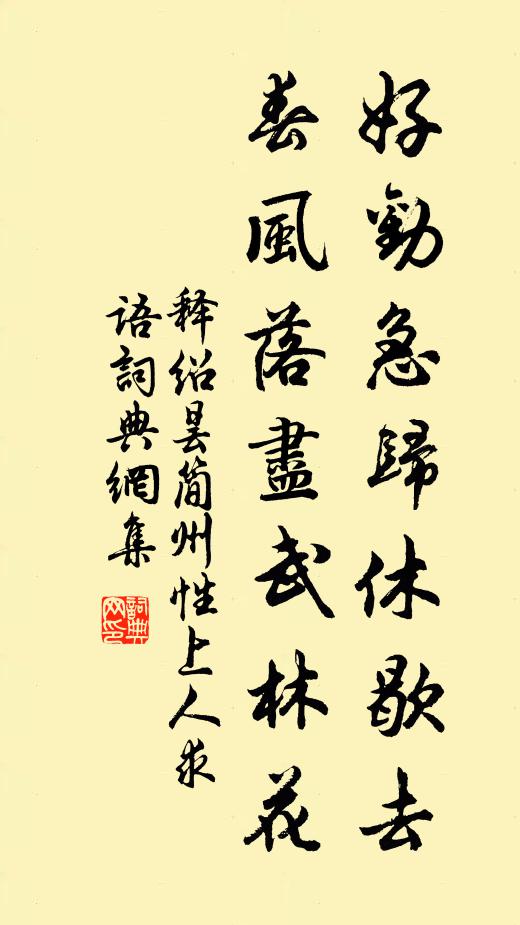 好勸急歸休歇去
春風落盡武林花
释绍昙简州性上人求
语詞典網集
詞典
网印